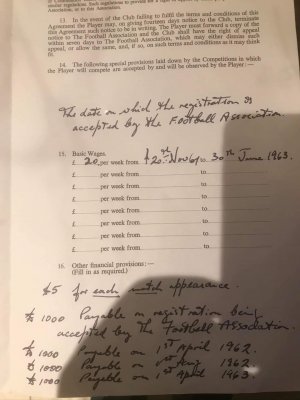 similar regulations. Such regulations to provide for a right of
Association, or to this Association.
13. In the event of the Club failing to fulfil the terms and conditions of this
Agreement the Player may, on giving fourteen days notice to the Club, terminate
this Agreement such notice to be in writing. The Player must forward a copy of the
notice to The Football Association and the Club shall have the right of appeal
within seven days to The Football Association, which may either dismiss such
appeal; or allow the same, and if so, on such terms and conditions as it may think
fit.
14. The following special provisions laid down by the Competitions in which
the Player will compete are accepted by and will be observed by the Player:—
The date on which the registration is
accepted by the Football Association.
15. Basic Wages.
£ 20 per week from 20th Nov 61 to 30th June 1963.
£ per week from to
£ per week from to
£ per week from to
£ per week from to
£ per week from to
£ per week from to
£ per week from to
16. Other financial provisions:—
(Fill in as required.)
£5 for each match appearance.
£1000 Payable on registration being
accepted by the Football Association.
£1000 Payable on 1st April 1962.
£1000 Payable on 1st Aug 1962.
£1000 Payable on 1st April 1963.